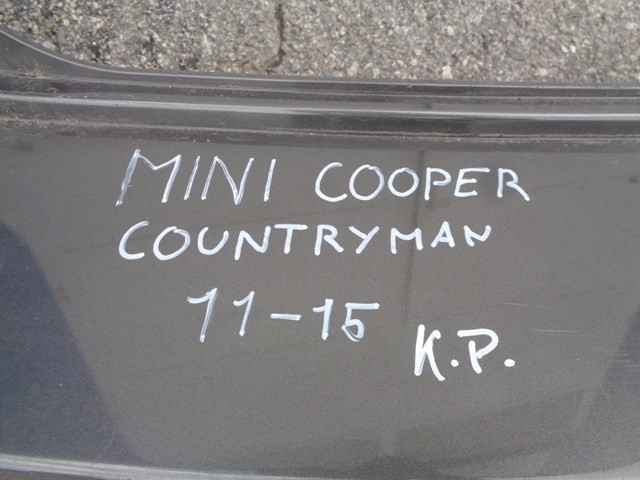 MINI COOPER
COUNTRYMAN
11-15
K.P.